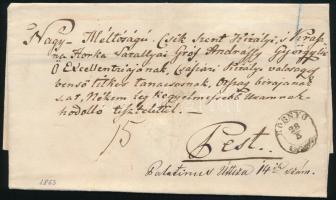 Nagy Méltóságú Csík Szent Királyi, s Kraszna
na Horka Várallyai Gróf Andrássy György
Ő Excellentiájának, Császári Királyi valóságos
benső titkos tanácsosnak, Ország birájának
s a t. Nékem leg kegyelmesebb Uramnak
hódoló tisztelettel. —
15
Pest.
Palatinus Uttsza 14ik szám.
ROSNYO
28
1863